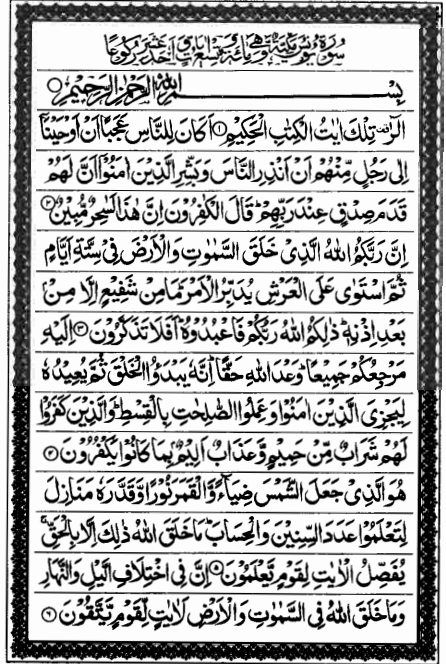 سُوْرَةُ يُوْنُسَ مَكِّيَّةٌ وَّهِيَ مِائَةٌ وَّتِسْعُ اٰيَاتٍ وَّاَحَدَ عَشَرَ رُكُوْعًا
بِسْمِ اللّٰهِ الرَّحْمٰنِ الرَّحِيْمِ
الٓرٰ تِلْكَ اٰيٰتُ الْكِتٰبِ الْحَكِيْمِ ﴿۱﴾ اَكَانَ لِلنَّاسِ عَجَبًا اَنْ اَوْحَيْنَاۤ
اِلٰى رَجُلٍ مِّنْهُمْ اَنْ اَنْذِرِ النَّاسَ وَبَشِّرِ الَّذِيْنَ اٰمَنُوْۤا اَنَّ لَهُمْ
قَدَمَ صِدْقٍ عِنْدَ رَبِّهِمْ ؕ قَالَ الْكٰفِرُوْنَ اِنَّ هٰذَا لَسٰحِرٌ مُّبِيْنٌ ﴿۲﴾
اِنَّ رَبَّكُمُ اللّٰهُ الَّذِيْ خَلَقَ السَّمٰوٰتِ وَالْاَرْضَ فِيْ سِتَّةِ اَيَّامٍ
ثُمَّ اسْتَوٰى عَلَى الْعَرْشِ يُدَبِّرُ الْاَمْرَ ؕ مَا مِنْ شَفِيْعٍ اِلَّا مِنْۢ
بَعْدِ اِذْنِهٖ ؕ ذٰلِكُمُ اللّٰهُ رَبُّكُمْ فَاعْبُدُوْهُ ؕ اَفَلَا تَذَكَّرُوْنَ ﴿۳﴾ اِلَيْهِ
مَرْجِعُكُمْ جَمِيْعًا ؕ وَعْدَ اللّٰهِ حَقًّا ؕ اِنَّهٗ يَبْدَؤُا الْخَلْقَ ثُمَّ يُعِيْدُهٗ
لِيَجْزِيَ الَّذِيْنَ اٰمَنُوْا وَعَمِلُوا الصّٰلِحٰتِ بِالْقِسْطِ ؕ وَالَّذِيْنَ كَفَرُوْا
لَهُمْ شَرَابٌ مِّنْ حَمِيْمٍ وَّعَذَابٌ اَلِيْمٌۢ بِمَا كَانُوْا يَكْفُرُوْنَ ﴿۴﴾
هُوَ الَّذِيْ جَعَلَ الشَّمْسَ ضِيَآءً وَّالْقَمَرَ نُوْرًا وَّقَدَّرَهٗ مَنَازِلَ
لِتَعْلَمُوْا عَدَدَ السِّنِيْنَ وَالْحِسَابَ ؕ مَا خَلَقَ اللّٰهُ ذٰلِكَ اِلَّا بِالْحَقِّ ۚ
يُفَصِّلُ الْاٰيٰتِ لِقَوْمٍ يَّعْلَمُوْنَ ﴿۵﴾ اِنَّ فِي اخْتِلَافِ الَّيْلِ وَالنَّهَارِ
وَمَا خَلَقَ اللّٰهُ فِي السَّمٰوٰتِ وَالْاَرْضِ لَاٰيٰتٍ لِّقَوْمٍ يَّتَّقُوْنَ ﴿۶﴾